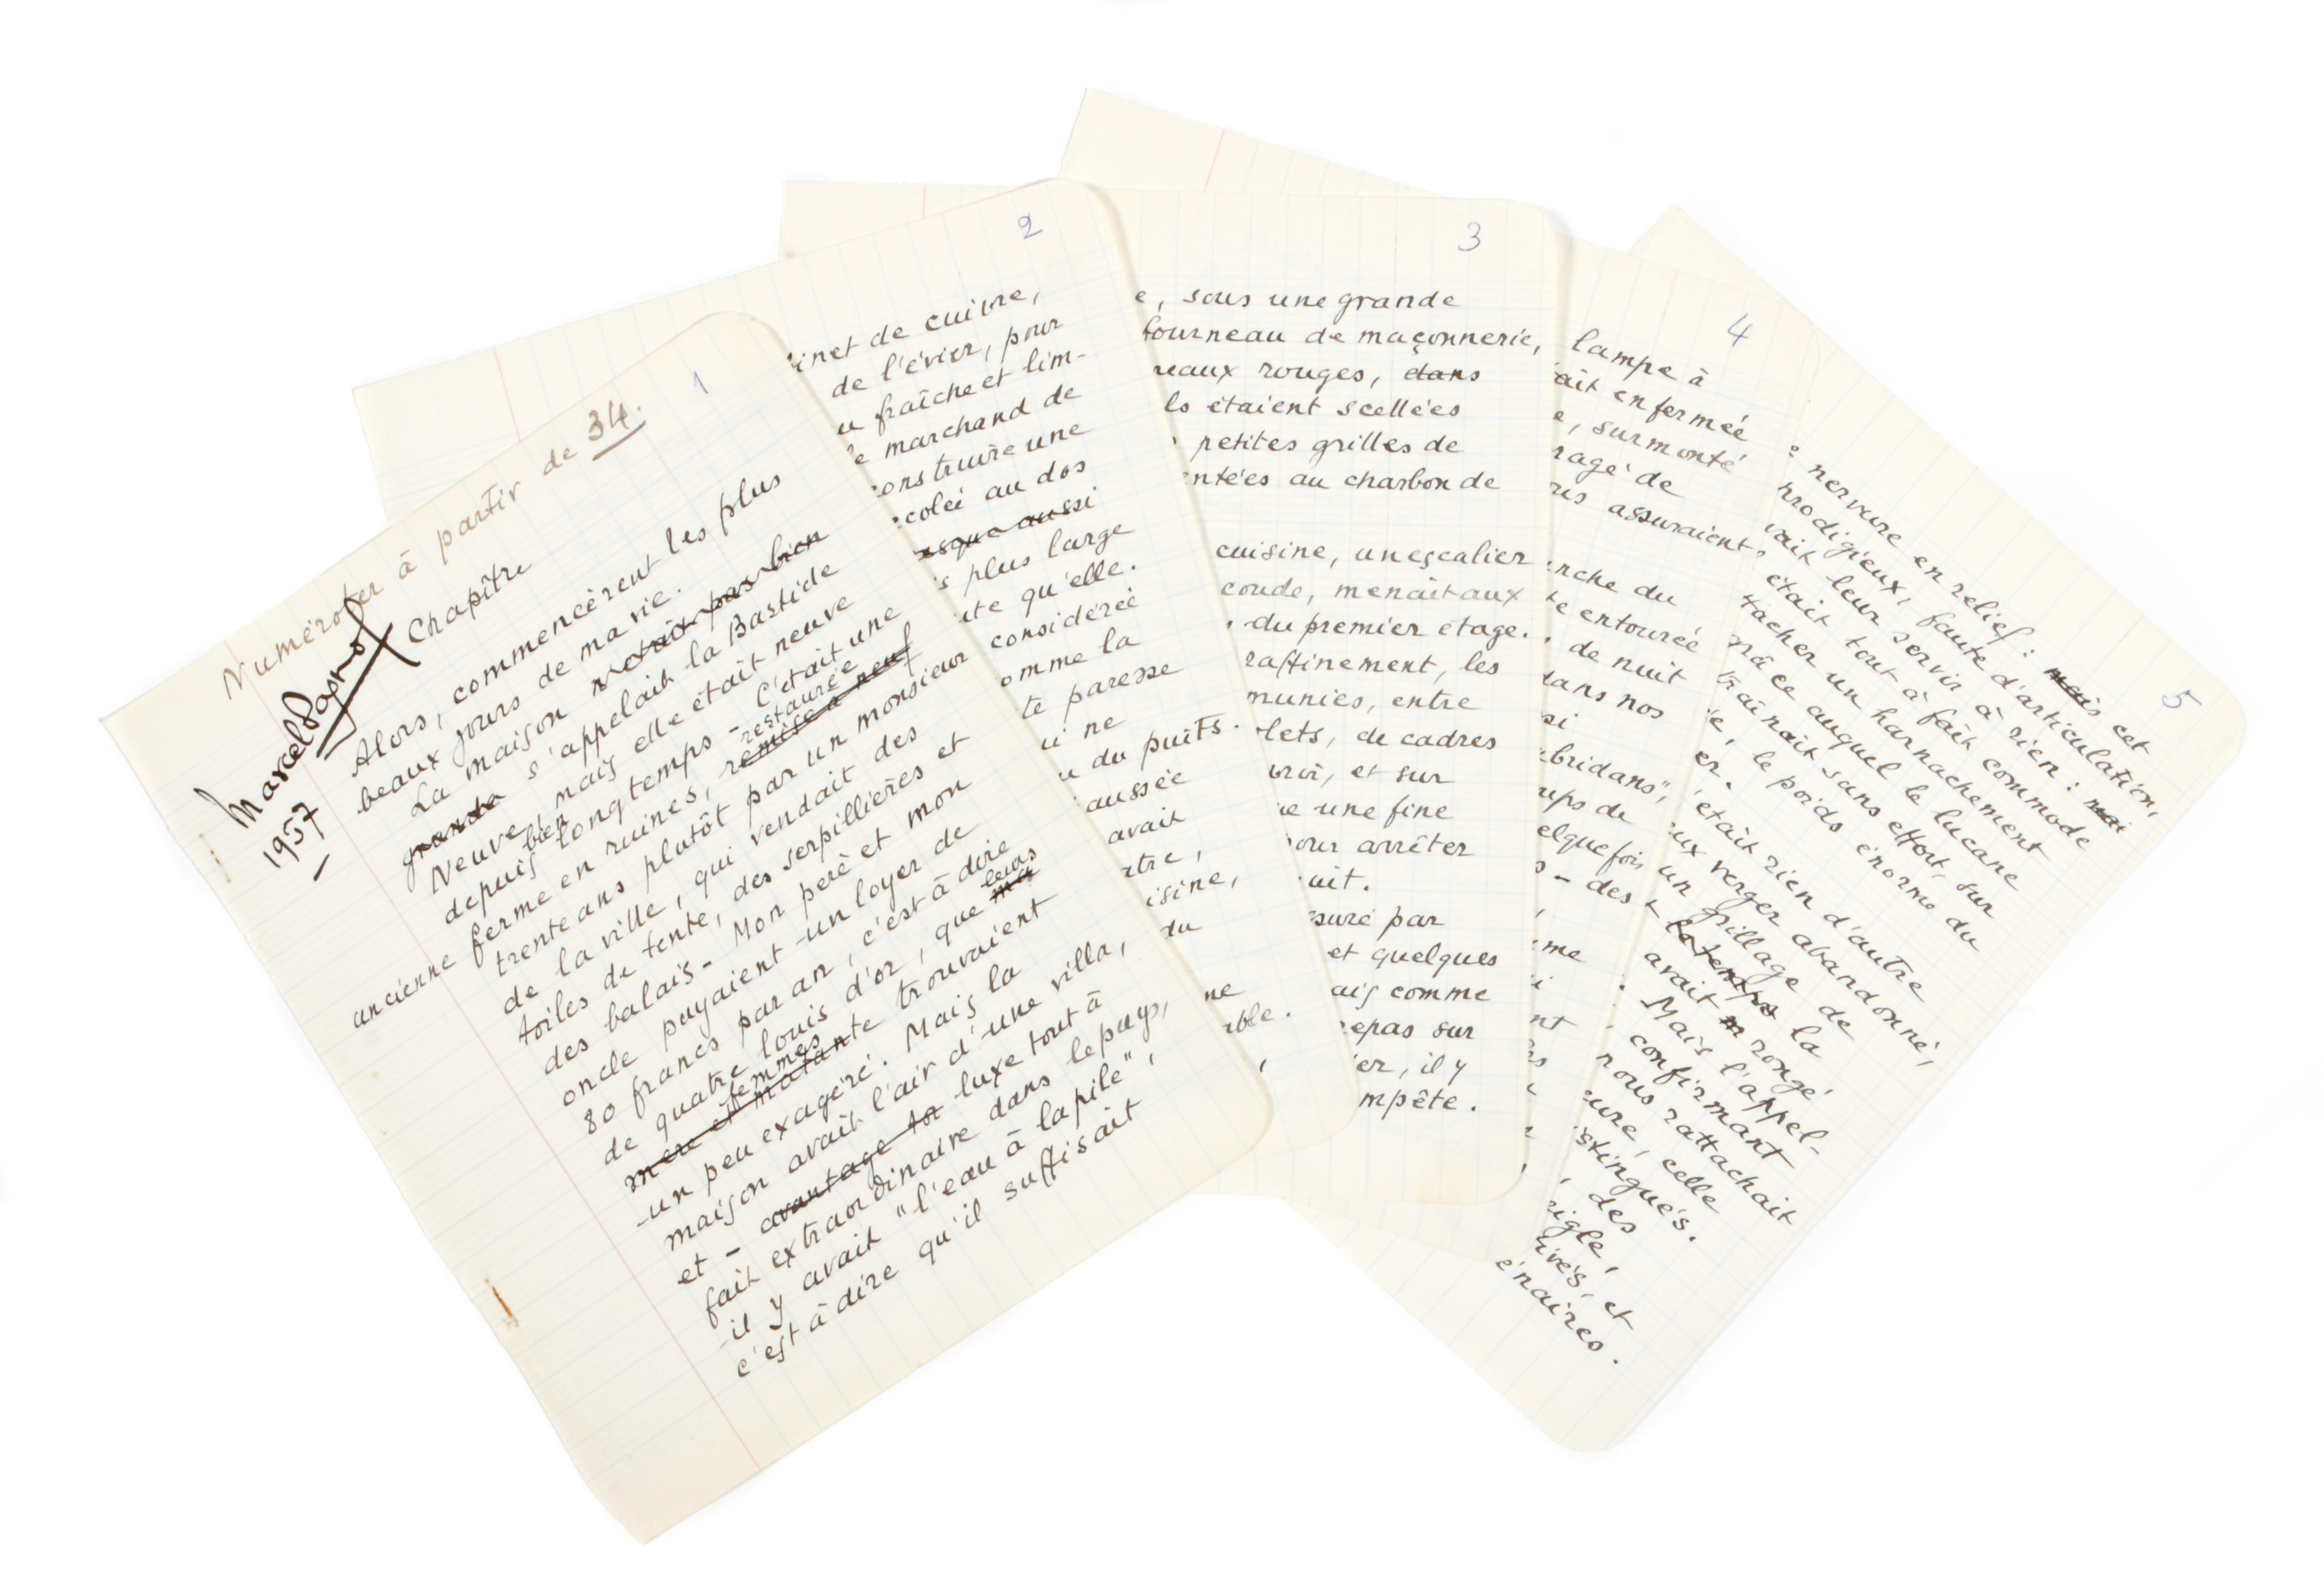 Numéroter à partir de 34.
1
Marcel Pagnol
1957
Chapître
Alors, commencèrent les plus
beaux jours de ma vie.
La maison n'était pas bien
grande s'appelait la Bastide
Neuve, mais elle était neuve
depuis bien longtemps - C'était une
ancienne ferme en ruines, remise à neuf restaurée
trente ans plutôt par un monsieur
de la ville, qui vendait des
toiles de tente, des serpillières et
des balais - Mon père et mon
oncle payaient un loyer de
80 francs par an, c'est à dire
de quatre louis d'or, que ma leurs
mère et ma tante femmes trouvaient
un peu exagéré. Mais la
maison avait l'air d'une villa,
et - avantage luxe tout à
fait extraordinaire dans le pays,
il y avait "l'eau à la pile",
c'est à dire qu'il suffisait
2
inet de cuivre,
de l'évier, pour
u fraîche et lim-
e marchand de
construire une
colée au dos
esque aussi
s plus large
ute qu'elle.
considérée
omme la
te paresse
ui ne
u du puits.
aussée
avait
âtre,
isine,
du
ne
able.
3
e, sous une grande
fourneau de maçonnerie,
reaux rouges, dans
ls étaient scellées
petites grilles de
entées au charbon de
cuisine, un escalier
coude, menait aux
du premier étage.
raffinement, les
munies, entre
lets, de cadres
uroi, et sur
ue une fine
pour arrêter
uit.
suré par
et quelques
ais comme
repas sur
er, il y
mpête.
4
lampe à
ait enfermée
e, surmonté
ragé de
us assuraient
nche du
te entourée
de nuit
dans nos
si
bridans",
ups de
elquefois
- des
me
i
nt
5
nervure en relief : mais cet
prodigieux, faute d'articulation,
vait leur servir à rien :
était tout à fait commode
tacher un harnachement
râce auquel le lucane
traînait sans effort, sur
le poids énorme du
er.
était rien d'autre
eux verger abandonné,
un grillage de
le temps la
avait rongé.
Mais l'appel-
confirmant
nous rattachait
eure, celle
stingués.
des
eigle,
ivés, et
énaires.